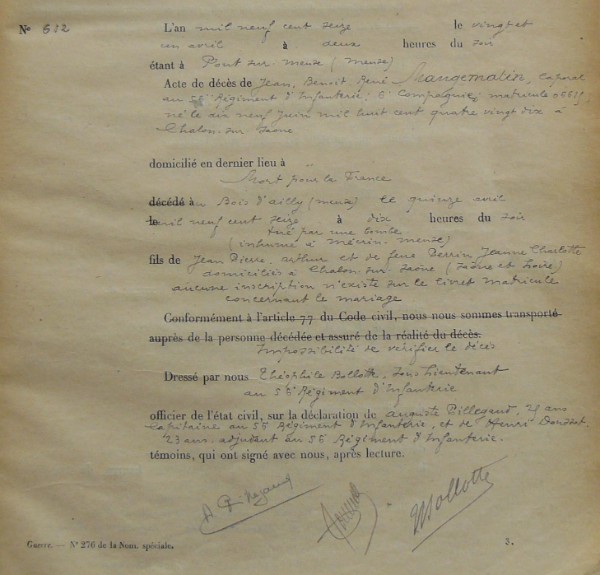 No 632 L'an mil neuf cent seize le vingt et
un avril à deux heures du soir
étant à Pont sur meuse (meuse)
Acte de décès de Jean, Benoit René Mangematin, Caporal
au 56e Régiment d'Infanterie; 6e Compagnie; matricule
né le dix neuf Juin mil huit cent quatre vingt dix à
Chalon-sur Saone
domicilié en dernier lieu à ..
Mort pour la France
décédé au Bois d'ailly (meuse) le quinze avril
le mil neuf cent seize à dix heures du soir
tué par une bombe
(inhumé à mécrin. meuse)
fils de Jean Pierre, arthur et de feue Perrin Jeanne Charlotte
domiciliés à Chalon-sur-Saône (Saône et Loire)
aucune inscription n'existe sur le livret matricule
concernant le mariage
Conformément à l'article 77 du Code civil, nous nous sommes transporté
auprès de la personne décédée et assuré de la réalité du décès.
Impossibilité de vérifier le décès
Dressé par nous Théophile Bollotte, Sous Lieutenant
au 56e Régiment d'Infanterie
officier de l'état civil, sur la déclaration de Auguste ans
Capitaine au 56e Régiment d'Infanterie, et de Henri
23 ans adjudant au 56e Régiment d'Infanterie.
témoins, qui ont signé avec nous, après lecture.
Bollotte
Guerre. — No 276 de la Nom. spéciale. 3.